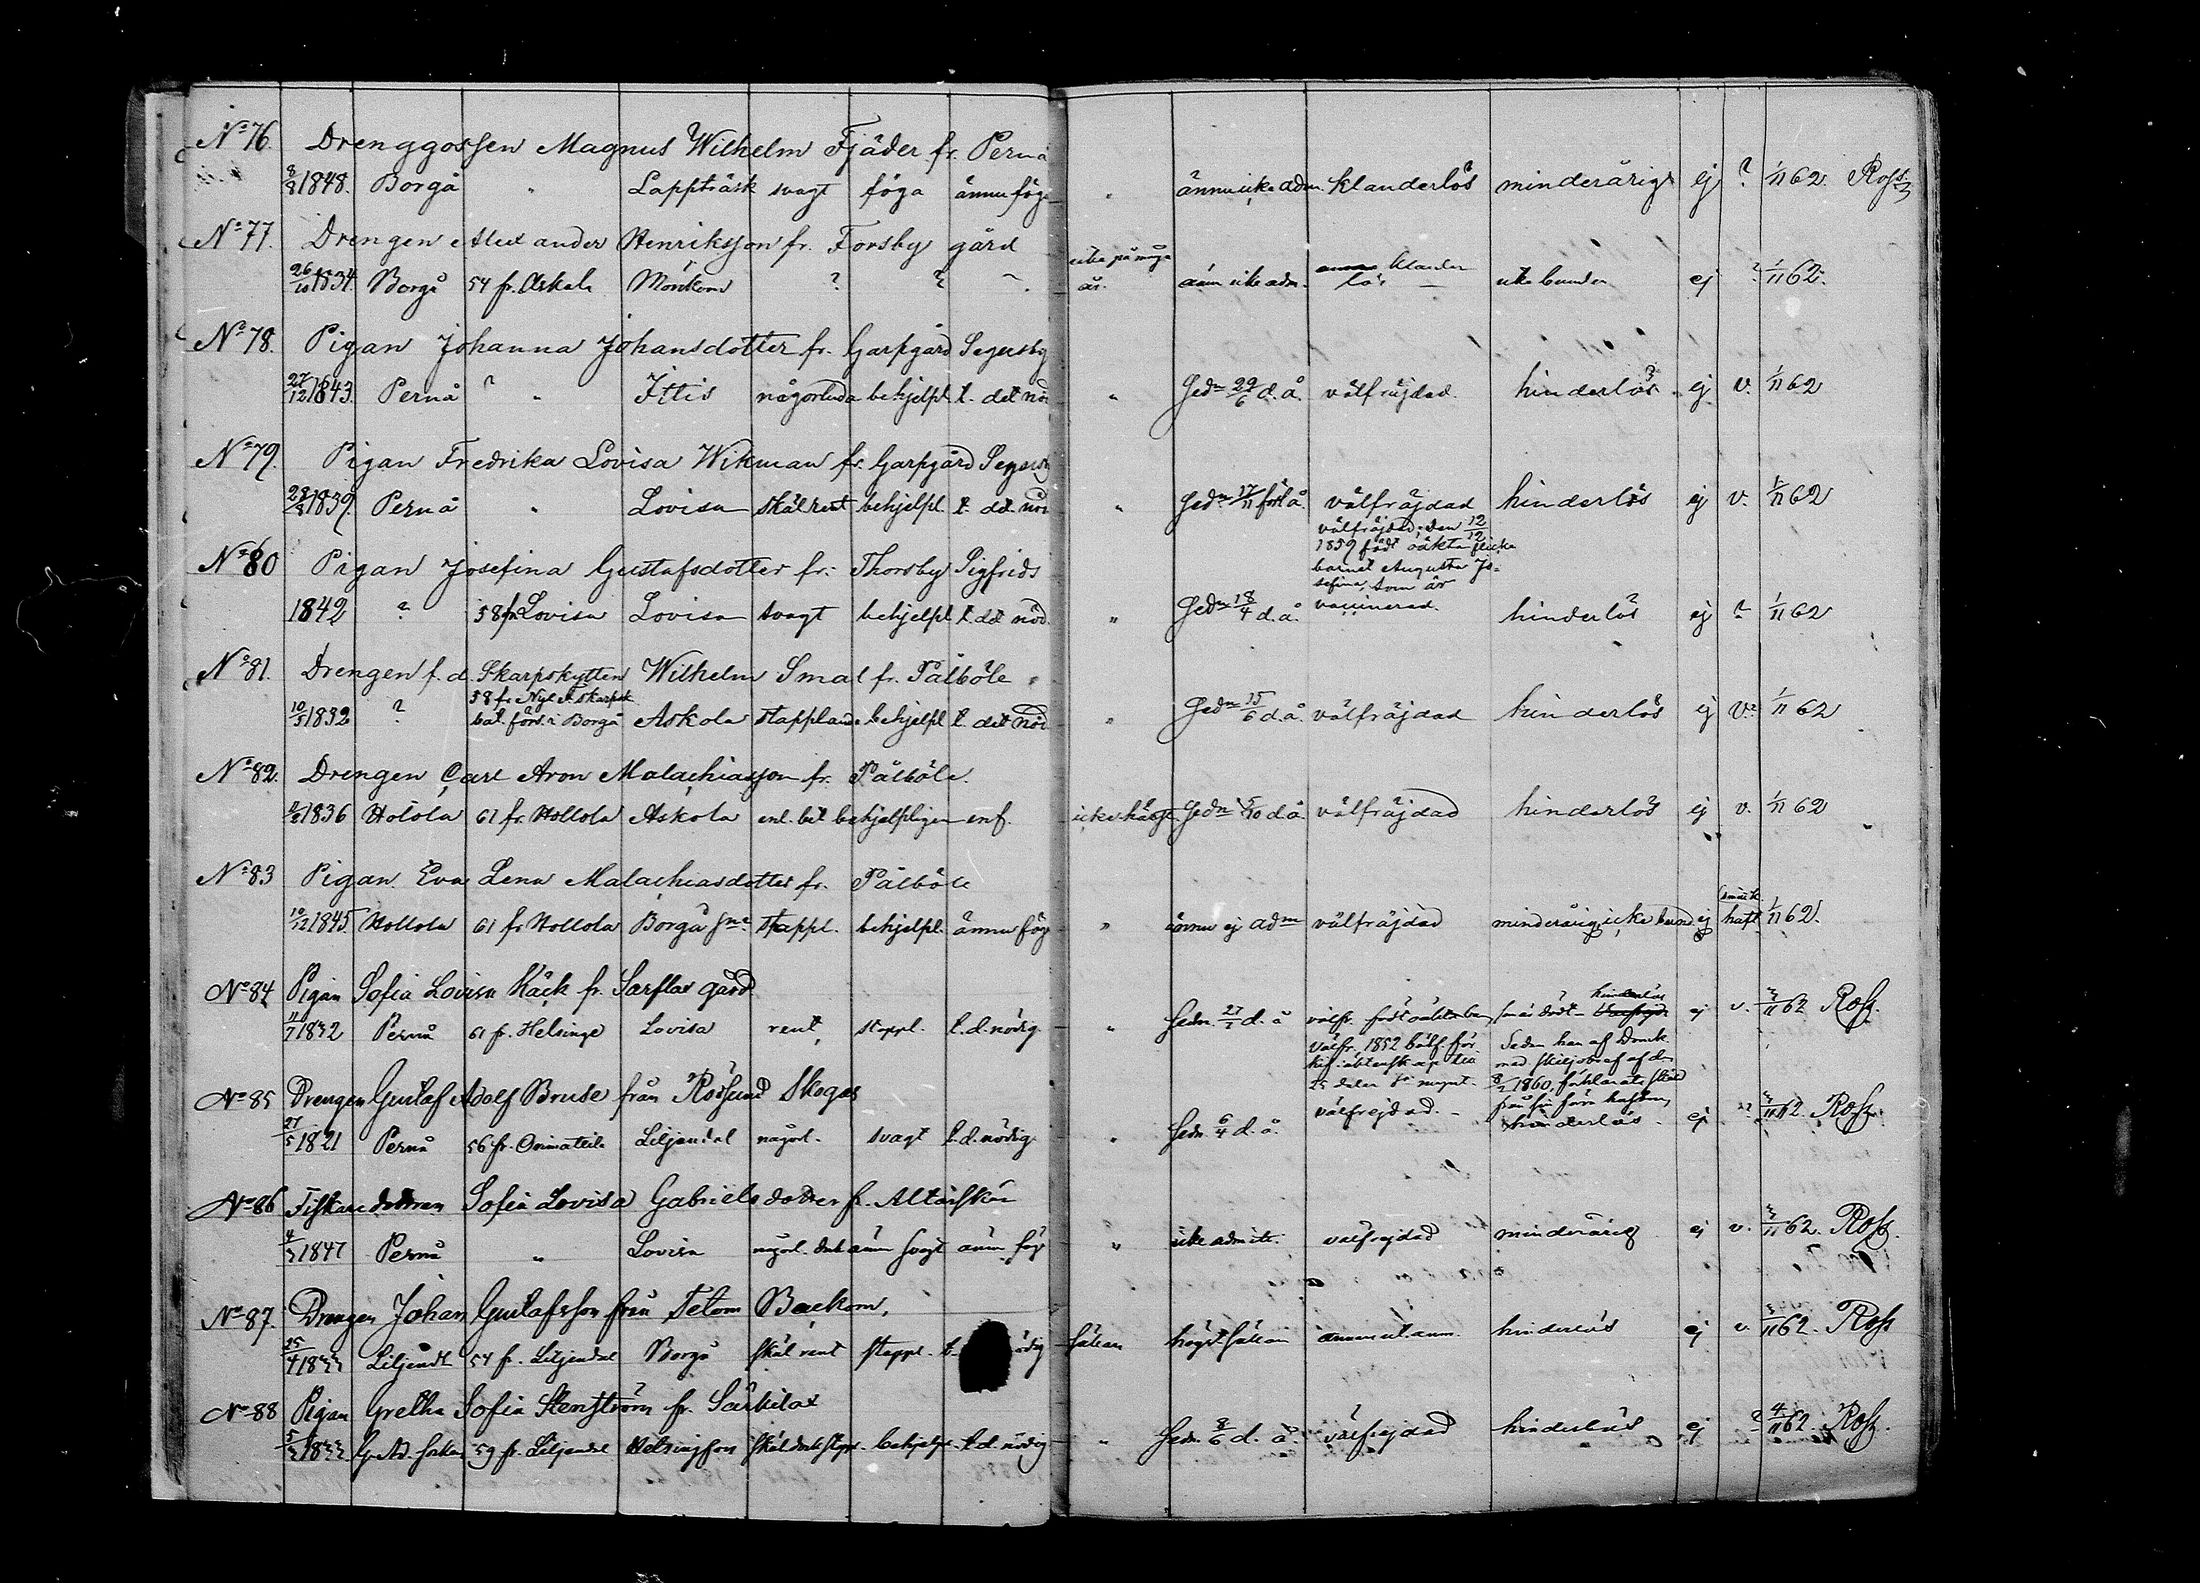 No 76. Drenggossen Magnus Wilhelm Fjäder fr. Pernå
8/8 1848. Borgå " Lappträsk svagt föga ännu föga " ännu icke adm. klanderlös minderårig ej ? 1/11 62. Ross
No 77. Drengen Alexander Henriksson fr. Forsby gård
26/10 1834. Borgå 54 fr. Askola Mörskom ? ? icke på många år. ännu icke adm. klanderlös icke bunden ej ? 1/11 62.
No 78. Pigan Johanna Johansdotter fr. Garpgård Segersby
27/12 1843. Pernå ? " Ittis någorlunda behjelpl. t. det nöd " Hedn 29/6 d. å. välfräjdad. hinderlös ? ej v. 1/11 62
No 79. Pigan Fredrika Lovisa Wikman fr. Garpgård Segersby
28/3 1839. Pernå " Lovisa skäl. rent behjelpl. t. det nöd " Hedn 17/11 förl. å. välfräjdad hinderlös ej v. 1/11 62
No 80 Pigan Josefina Gustafsdotter fr. Thorsby Sigfrids
välfräjdad; den 12/12
1859 födt oäkta flicke
barnet Augusta Jo-
sefina, som är
vaccinerad.
1842 ? 58 fr. Lovisa Lovisa svagt behjelpl. t. det nöd. " Hedn 18/4 d. å. hinderlös ? ej ? 1/11 62
No 81. Drengen f. d. Skarpskytten Wilhelm Smal fr. Pålböle
58 fr. Nyl. F. skarpsk.
bat. förs. i Borgå
10/5 1832 ? Askola stapplande behjelpl. t. det nöd. " Hedn 15/6 d. å. välfräjdad hinderlös ej v. 1/11 62
No 82. Drengen Carl Aron Malachiasson fr. Pålböle.
1836 Holola 61 fr. Hollola Askola enl. bet. behjelpligen enf. icke häfst. Hedn 5/10 d. å. välfräjdad hinderlös ej v. 1/11 62
No 83 Pigan Eva Lena Malachiasdotter fr. Pålböle
10/12 1845. Hollola 61 fr. Hollola Borgå sn. stappl. behjelpl. ännu föga " ännu ej adm välfräjdad minderårig icke bund. ej haft 1/11 62.
No 84 Pigan Sofia Lovisa Käck fr. Sarflax gård
11/7 1832 Pernå 61 fr. Helsinge Lovisa rent stappl. t. d. nödig. " Hedn. 27/ d. å välfr. födt oäkta barn, som är dödt – hinderlös ej v. 3/11 62 Ross.
No 85 Drengen Gustaf Adolf Bruse från Rösund Skogas
Sedan han af Domk.
med skiljobref af d.
8/2 1860, förklarats skild
från sin förra hustru,
27/5 1821 Pernå 56 fr. Orimattila Liljendal någorl. svagt t. d. nödig " Hedn. 6/4 d. å. välfrejdad. – hinderlös. ej ? 3/11 62. Ross.
No 86 Fiskare dottren Sofia Lovisa Gabrielsdotter fr. Altarskär
4/3 1847 Pernå " Lovisa någorl. ännu svagt ännu föga " icke admitt. välfrejdad minderårig ej v. 3/11 62. Ross.
No 87. Drengen Johan Gustafsson från Tetom Backom,
25/4 1833 Liljendl 54 fr. Liljendal Borgå skäl. rent stappl. t. nödig sällan högst sällan hinderlös ej v. 3/11 62. Ross
No 88 Pigan Gretha Sofia Stenström fr. Särkilax
5/3 1833 59 fr. Liljendal Helsingfors behjelpl. t. d. nödig " Hedn. 8/6 d. å. välfrejdad hinderlös ej ? 4/11 62 Ross.